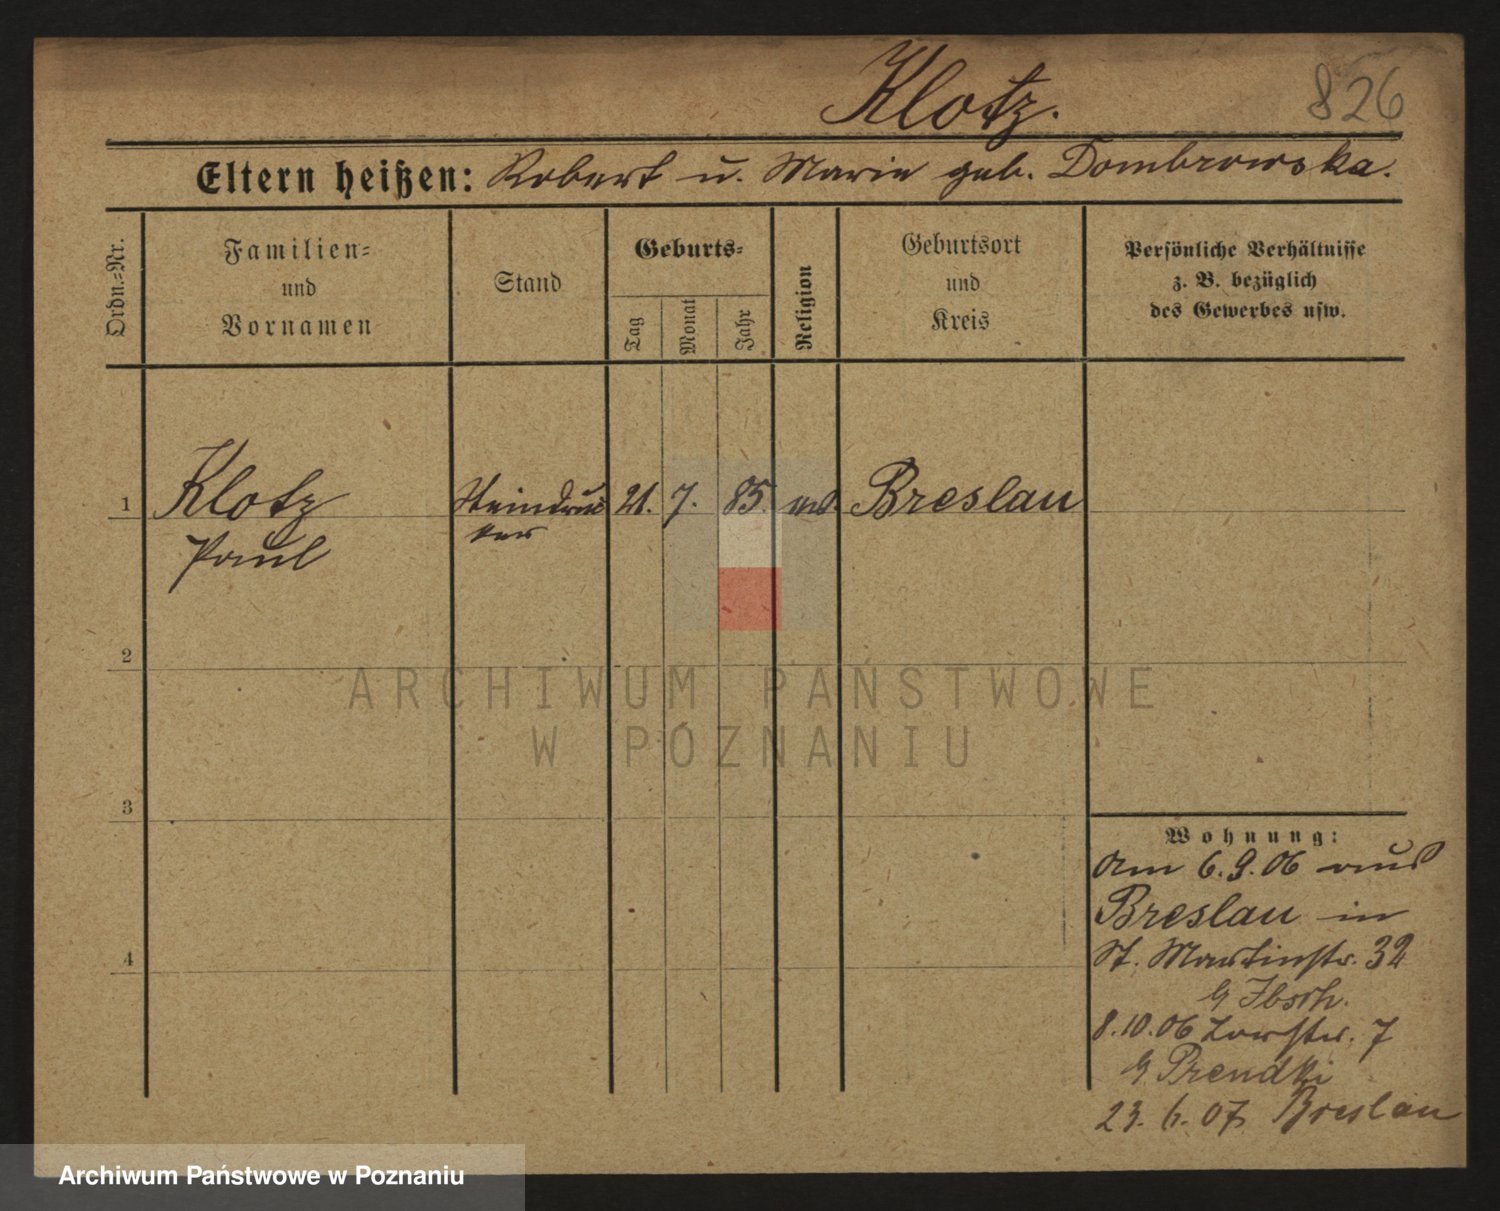 Klotz.
826
Eltern heißen: Robert u. Marie geb. Dombrowska.
Ordn.-Nr.
Familien-
und
Vornamen
Stand
Geburts-
Tag
Monat
Jahr
Religion
Geburtsort
und
Kreis
Persönliche Verhältnisse
z. B. bezüglich
des Gewerbes usw.
1
Klotz
Paul
Steindruk
ker
21. 7. 85.
Breslau
2
3
4
Wohnung:
Am 6.9.06 aus
Breslau in
St. Martinstr. 32
8.10.06 Torstr. 7
23. 6. 07 Breslau
ARCHIWUM PAŃSTWOWE
W POZNANIU
Archiwum Państwowe w Poznaniu